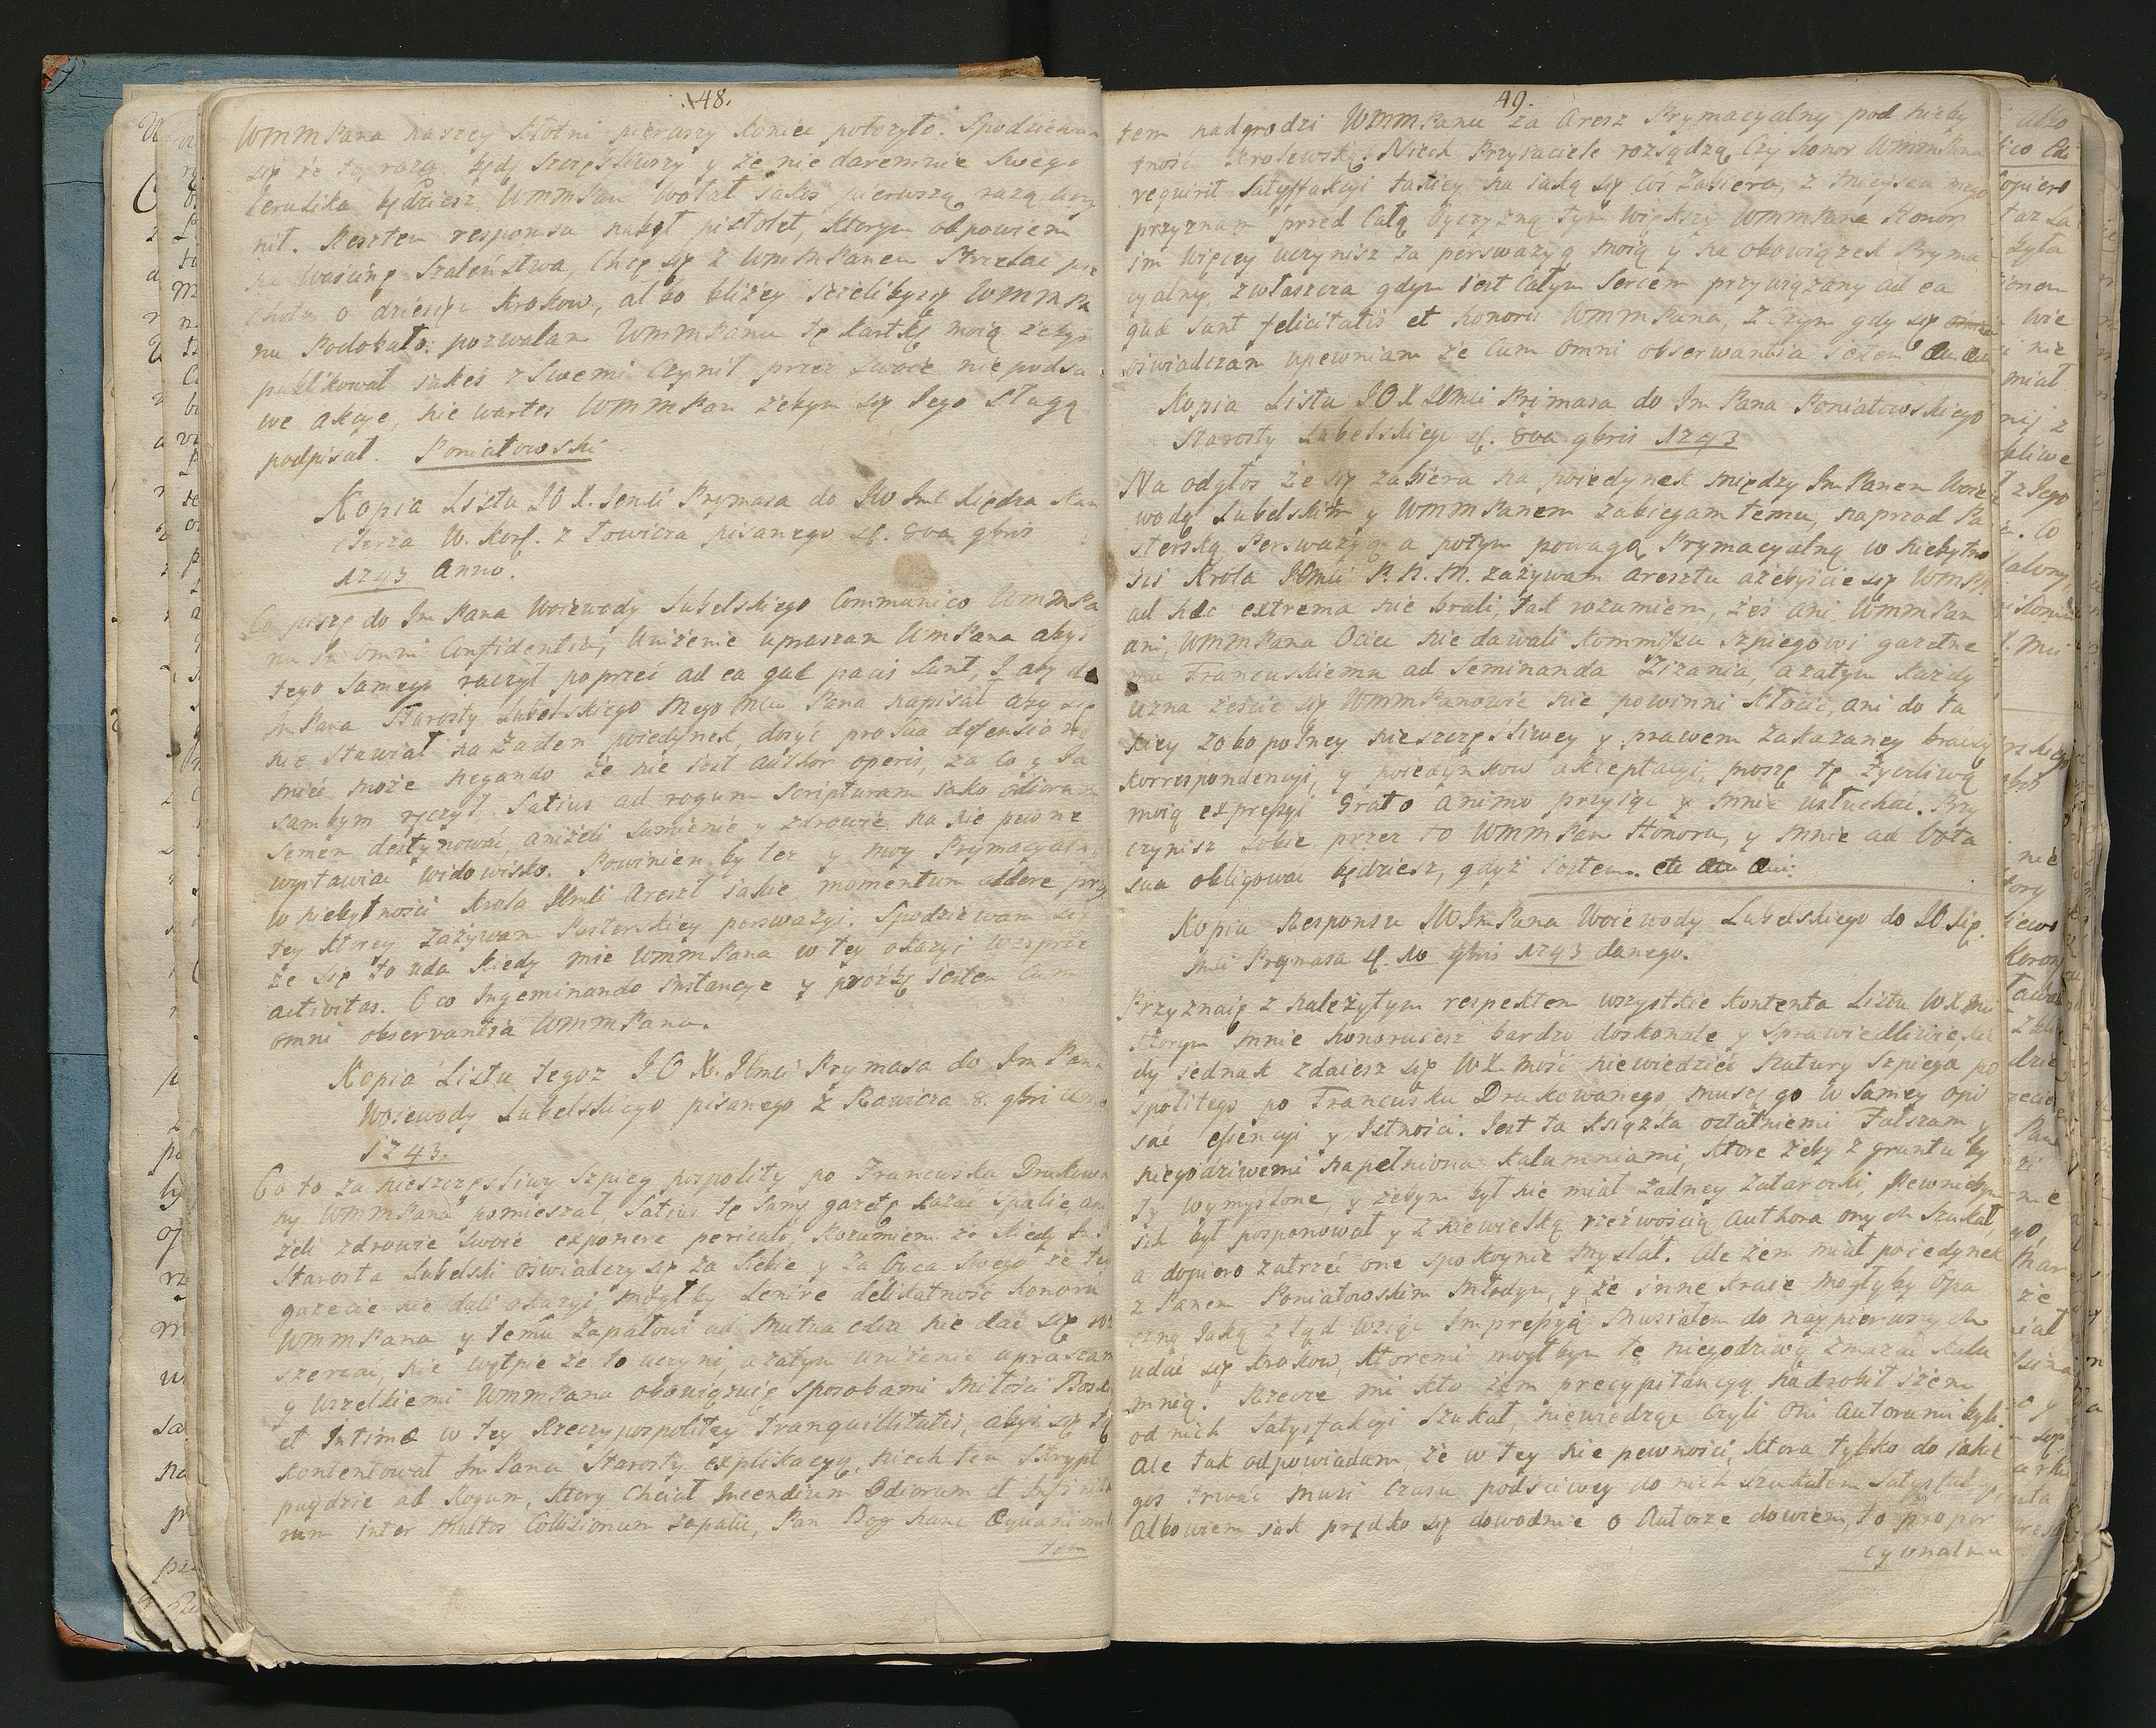 48.
WMMPana naszey kłotni pierwszy koniec położyło. Spodziewam
się że tą razą będę szczęśliwszy y że nie daremnie Swego
będziesz WMMPan wołał iakeś pierwszą razą uczy
nił. Resztem responsu nabył pistolet, ktorym odpowiem
na Waścine Szaleństwa, Chcę się z WMMPanem Strzelać
o dziesięć krokow, albo bliżey ieżeliby się WMMPa
nu Podobało: pozwalam WMMPanu tę kartkę moią żebyś
publikował iakeś z Swemi Czynił przez Swoie niepodsci
we akcye, nie wartes WMMPan żebym się Iego Sługą
podpisał. Poniatowski
Kopia Listu IO X. Jmci Prymasa do Jmć Xiędza Kan
clerza W. Kor. z Łowicza pisanego d. 8va 9bris
1743 Anno.
Co piszę do Jm Pana Woiewody Lubelskiego Communico WMMPa
nu in omni Confidentia, Uniżenie upraszam WmPana abyś
tego samego raczył poprzeć ad ea quæ pacis Sunt, I aby do
Jm Pana Starosty Lubelskiego mego Mci Pana napisał aby się
nie stawiał na żaden poiedynek, dosyć pro Sua defensione
mieć może negando że nie iest author operis, za Co y Ia
sam bym ręczył. Satius ad rogum Scripturam iako odiorum
Semen destynować, aniżeli Sumienie y zdrowie na nie pewne
wystawiać widowisko. Powinien by też y moy Prymacyalny
w niebytności Krola Jmci Areszt iakie momentum addere przy
tey ktorey zażywam Pasterskiey perswazyi. Spodziewam się
że się to uda kiedy mie WMMPana w tey okazyi wesprze
activitas. O co Ingeminando instancye y proźbę iestem Cum
omni observantia WMMPana.
Kopia Listu tegoż IO X. Jmci Prymasa do Jm Pana
Woiewody Lubelskiego pisanego z Rawicza 8. 9bri Anno
1743.
Co to za nieszczęsliwy szpieg pospolity po Francusku Drukowa
ny WMMPana pomieszał Satius tę samą gazetę kazać spalić, ani
żeli zdrowie Swoie exponere periculo, Rozumiem że kiedy Jmć
Starosta Lubelski oświadczy się za Siebie y za Oyca Swego że tey
gazecie nie dali okazyi, mogł by lenire delikatność honoru
WMMPana y temu zapałowi ad mutua odia nie dać się roz
szerzać, nie wątpie że to uczyni, a zatym uniżenie upraszam
y wszelkiemi WMMPana obowiązuię sposobami miłości Boskiey
et Intimæ w tey Rzeczypospolitey tranquillitatis, abyś się tą
kontentował Jm Pana Starosty explikacyą, niech ten Skrypt
puydzie ad Rogum, ktory chciał Incendium Odiorum et Infinita
rum inter multos Collisionum zapalić, Pan Bog hanc Æquanimita
tem
49.
tem nadgrodzi WMMPanu za Areszt Prymacyalny pod nieby
tność Krolewską. Niech Przyiaciele rozsądzą Czy honor WMMPana
requirit Satysfakcyi takiey na iaką się Coś zabiera, z mieysca mego
przyznam przed Całą Oyczyzną tym większy WMMPana Honor,
im więcey uczynisz za perswazyą moią y na obowiązek Pryma
cyalny, zwłaszcza gdym iest Całym Sercem przywiązany ad ea
quæ sunt felicitatis et honoris WMMPana. Z czym gdy się
oświadczam upewniam że Cum omni observantia iestem
Kopia Listu IO X JEmci Primasa do Jm Pana Poniatowskiego
Starosty Lubelskiego d. 8va 9bris 1743
Na odgłos że się zabiera na poiedynek między Jm Panem Woie
wodą Lubelskim y WMMPanem zabiegam temu, naprzod Pa
sterską Perswazyą a potym powagą Prymacyalną w niebytno
ści Krola JEmci P. N. M. zażywam aresztu ażebyście się WmPP.
ad hæc extrema nie brali, tak rozumiem, żeś ani WMMPan
ani WMMPana Ociec nie dawali kommissu szpiegowi gazetne
mu Francuskiemu ad Seminanda Zizania, a zatym każdy
uzna żeście się WMMPanowie nie powinni kłocić, ani do ta
kiey zobopolney nieszczęśliwey y prawem zakazaney brać się
korrespondencyi, y poiedynkow akceptacyi, proszę tę życzliwą
moią expressyi grato animo przyiąć y mnie usłuchać. Przy
czynisz Sobie przez to WMMPan Honoru, y mnie ad Vota
sua obligować będziesz, gdyż iestem. etc
Kopia Responsu JWJmPana Woiewody Lubelskiego do IO Xię
Jmci Prymasa d. 10 9bris 1743 danego.
Przyznaię z należytym respektem wszystkie kontenta Listu WX Mci
ktorym mnie honoruiesz bardzo doskonałe y Sprawiedliwie, kie
dy iednak zdaiesz się WX. Mość niewiedzieć natury Szpiega po
spolitego po Francusku Drukowanego, muszę go w samey opi
sać essencyi y Istności. Jest ta książka ostatniemi Fałszami y
niegodziwemi napełniona kalumniami, ktore żeby z gruntu by
ły wymyslone, y żebym był nie miał żadney Zatarczki, Pewniebym
ich był posponował y z niewielką rzeźwością Authora onych szukał,
a dopiero zatrzeć one spokoynie myślał. Ale żem miał poiedynek
z Panem Poniatowskim Młodym, y że inne kraie mogłyby Opa
czną iaką z tąd wziąć Impressyą musiałem do naypierwszych
udać się krokow, ktoremi mogłbym tę niegodziwą zmazać kalu
mnią. Rzecze mi kto żem precypitancyą nadrobił iżem
od nich Satysfakcyi Szukał, niewiedząc Czyli Oni Autorami byli.
Ale tak odpowiadam, że w tey nie pewności, ktora tylko do iakie
goś trwać musi Czasu podściwey do nich szukałem Satysfakcyi,
Albowiem iak prędko się dowodnie o Autorze dowiem, to propor
cyonalnu